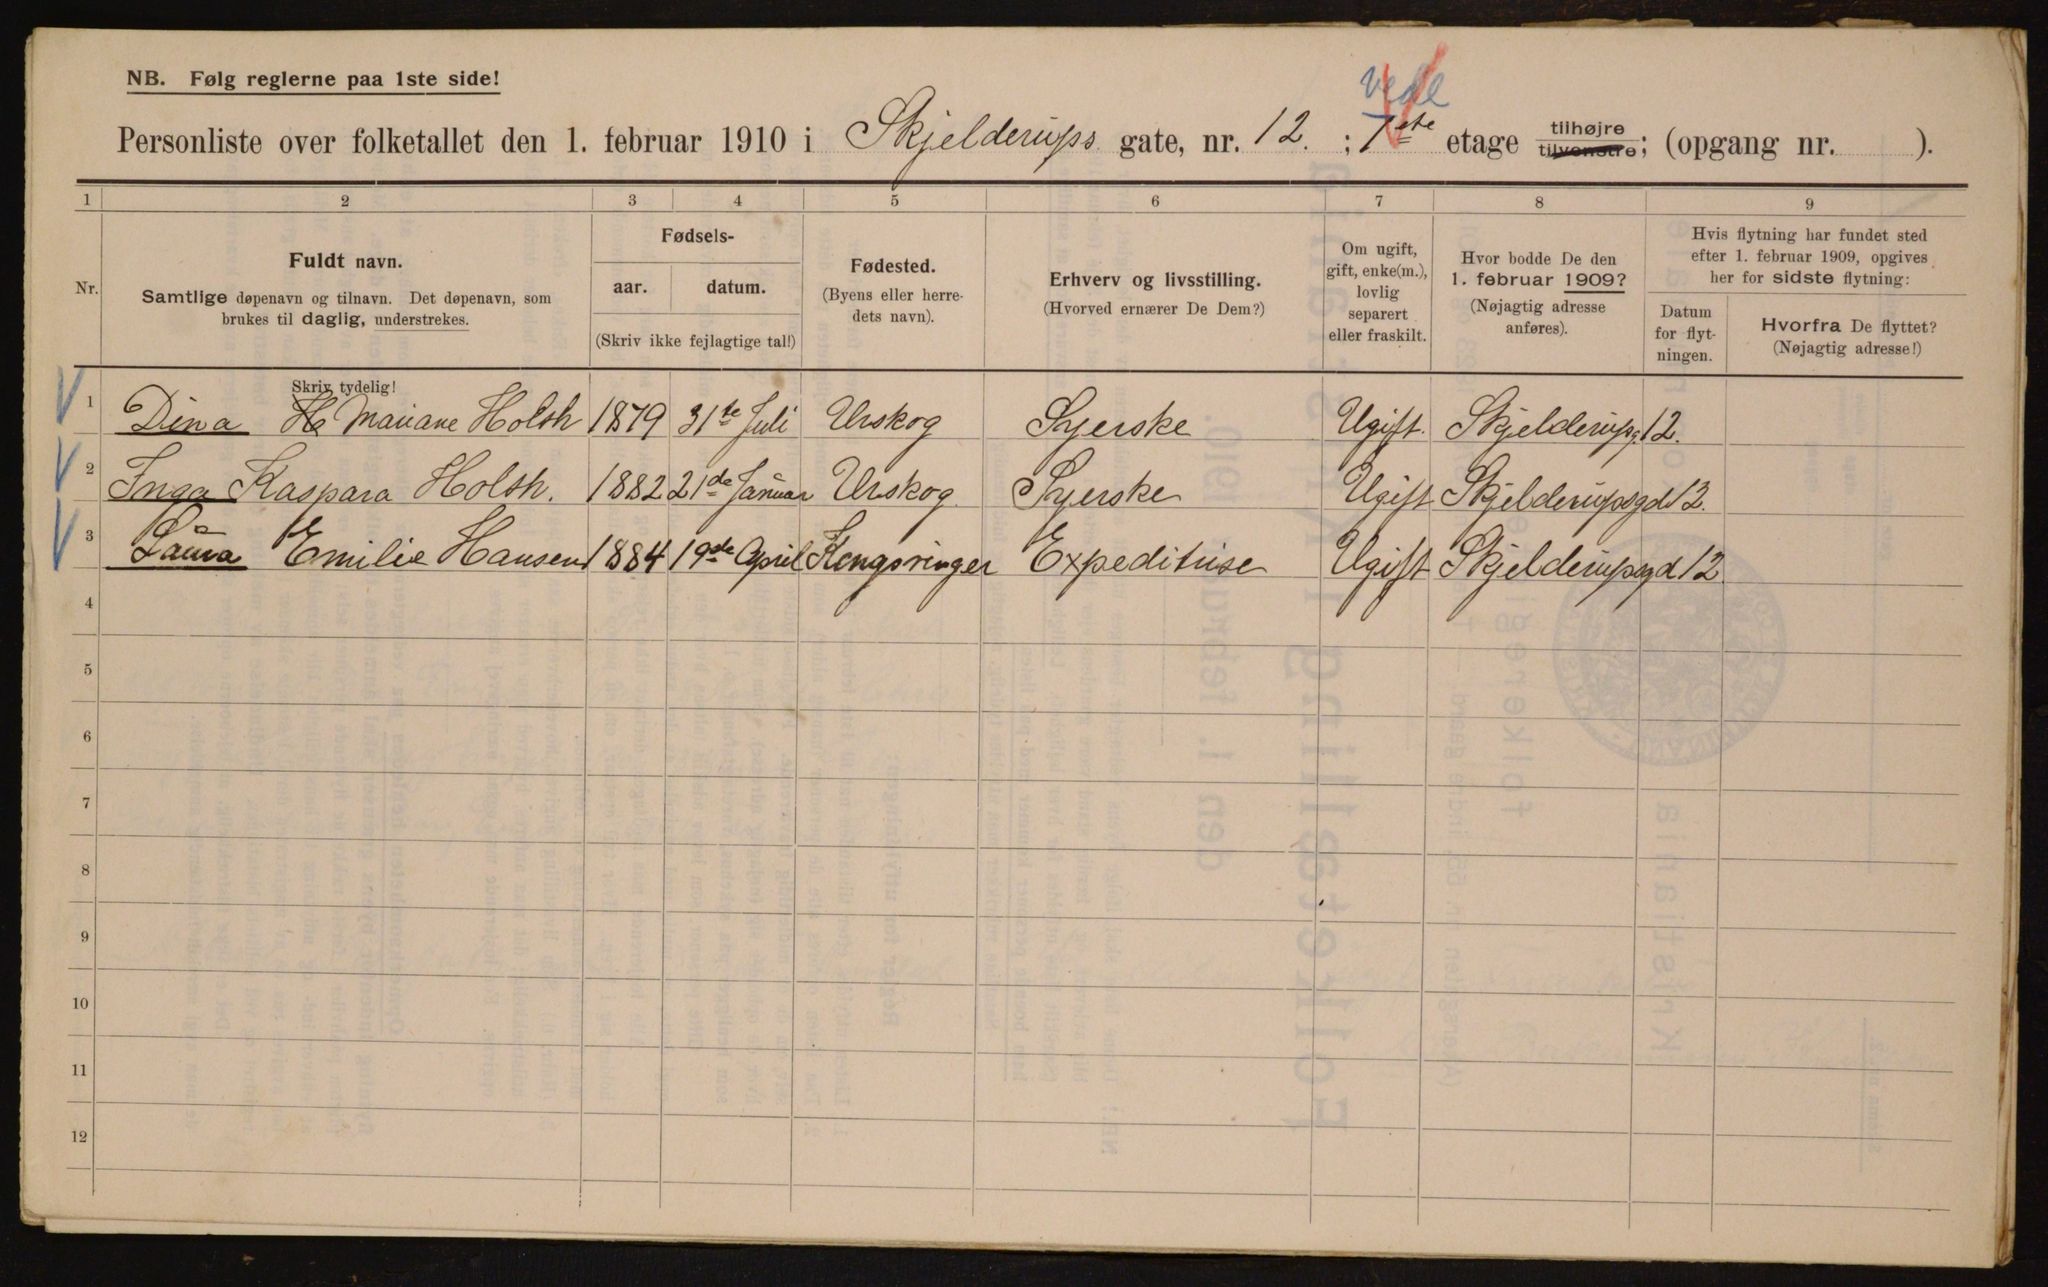 NB. Følg reglerne paa 1ste side!
vedl
Personliste over folketallet den 1. februar 1910 i Skjelderups gate, nr. 12. ; 1ste etage tilhøjre tilvenstre; (opgang nr. ).
1 2 3 4 5 6 7 8 9
Nr.
Fuldt navn.
Samtlige døpenavn og tilnavn. Det døpenavn, som
brukes til daglig, understrekes.
Fødsels-
aar. datum.
(Skriv ikke fejlagtige tal!)
Fødested.
(Byens eller herre-
dets navn).
Erhverv og livsstilling.
(Hvorved ernærer De Dem?)
Om ugift,
gift, enke(m.),
lovlig
separert
eller fraskilt.
Hvor bodde De den
1. februar 1909?
(Nøjagtig adresse
anføres).
Hvis flytning har fundet sted
efter 1. februar 1909, opgives
her for sidste flytning:
Datum
for flyt-
ningen.
Hvorfra De flyttet?
(Nøjagtig adresse!)
Skriv tydelig!
1 Dina Mariane Holsh 1879 31te Juli Urskog Syerske Ugift. Skjelderupsg 12.
2 Inga Kaspara Holsh. 1882 21de Januar Urskog Syerske Ugift Skjelderupsgd 12.
3 Laura Emilie Hansen 1884 19de April Kongsvinger Expeditrise Ugift Skjelderupsgd 12
4
5
6
7
8
9
10
11
12